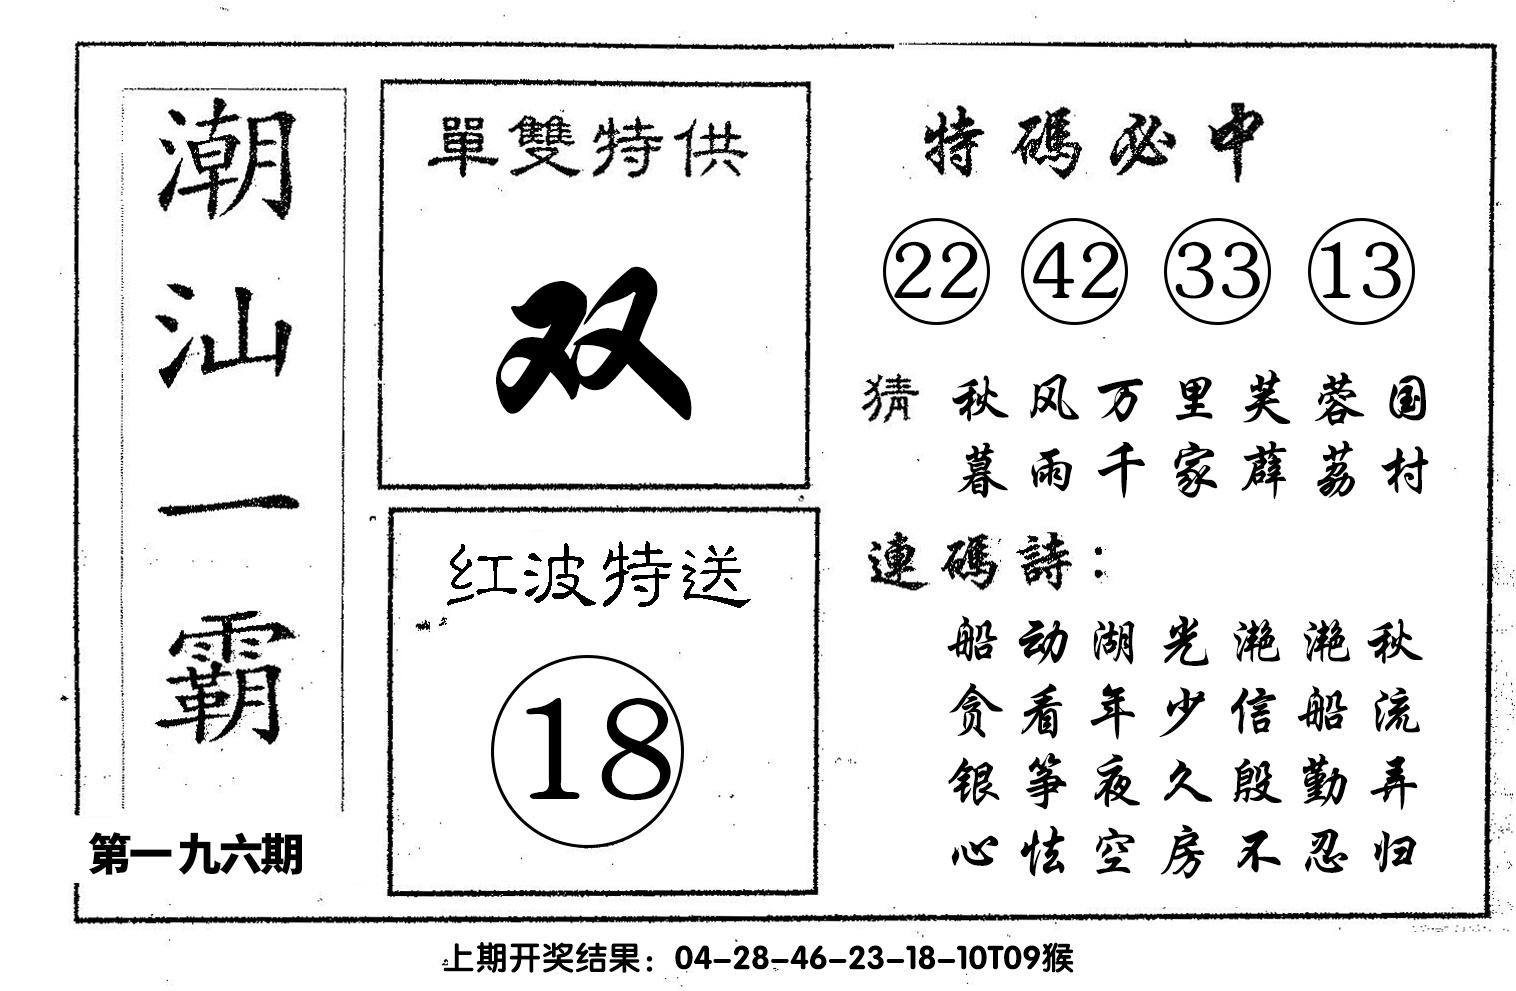 潮汕一霸
第一九六期
單雙特供
双
红波特送
18
特碼必中
22 42 33 13
猜 秋风万里芙蓉国
暮雨千家薜荔村
連碼詩：
船动湖光滟滟秋
贪看年少信船流
银筝夜久殷勤弄
心怯空房不忍归
上期开奖结果：04-28-46-23-18-10T09猴